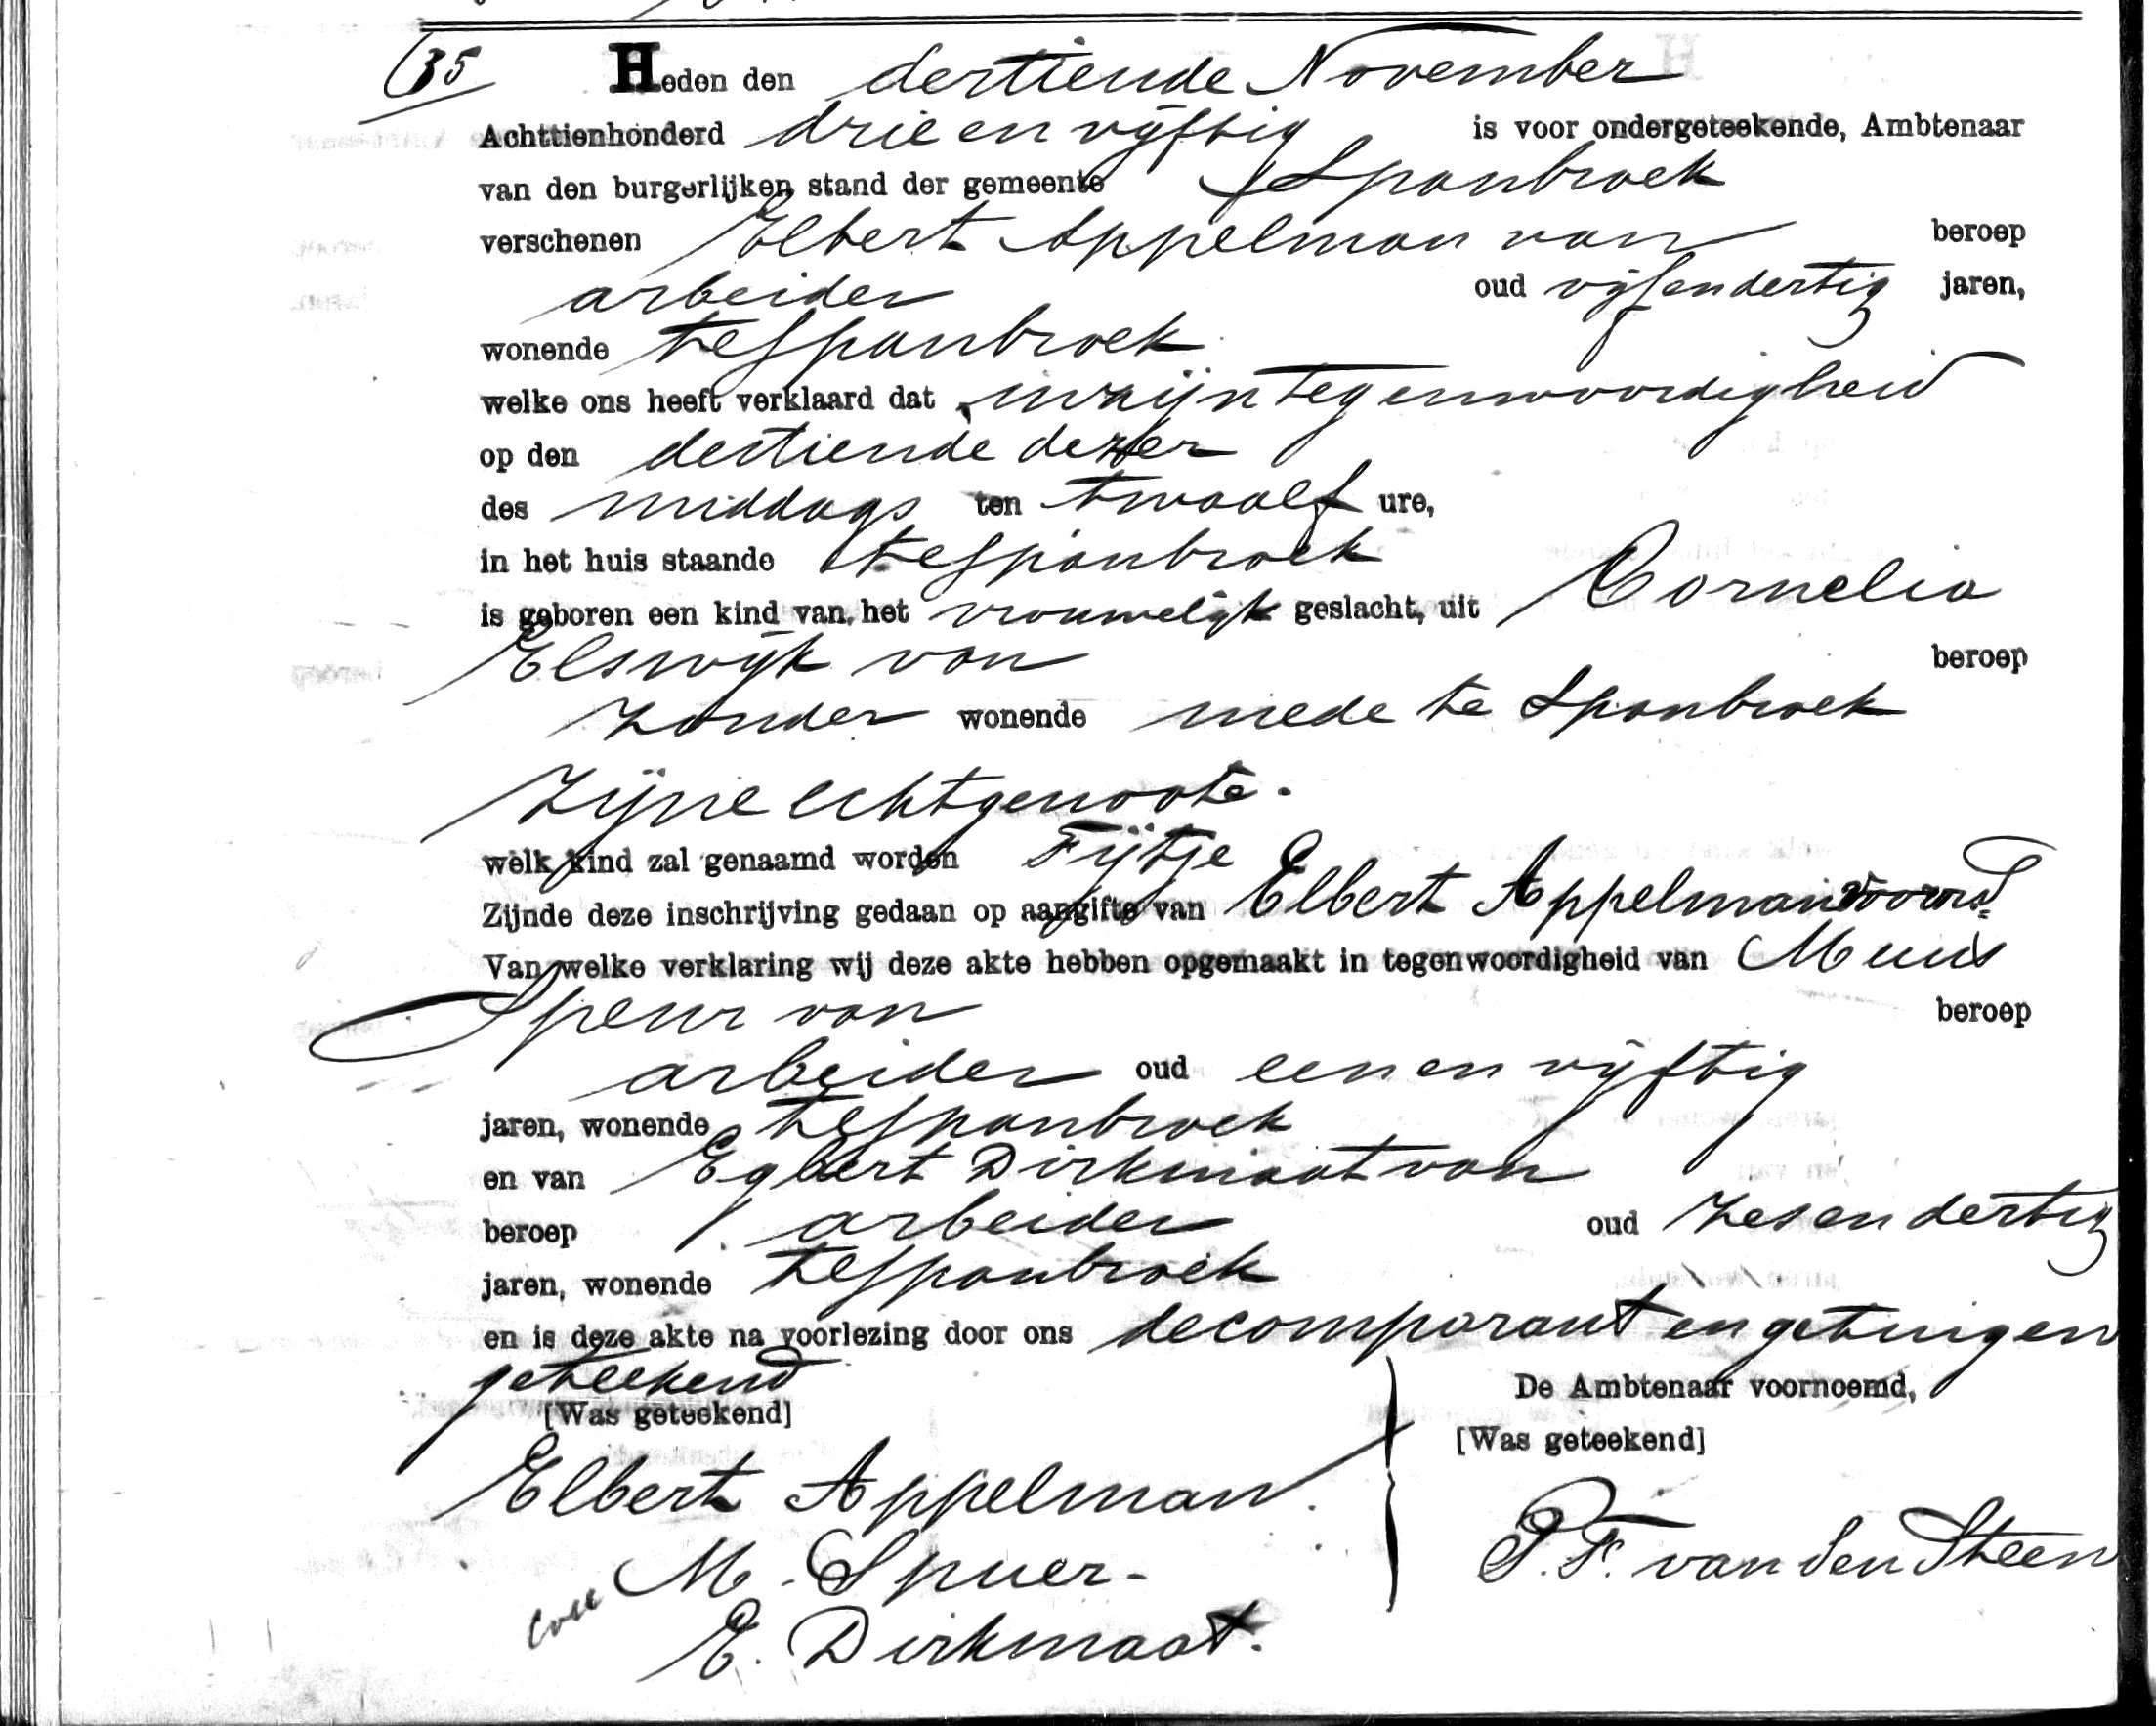 35
Heden den dertiende November
Achttienhonderd drie en vijftig is voor ondergeteekende, Ambtenaar
van den burgerlijken stand der gemeente Spanbroek
verschenen Elbert Appelman van beroep
arbeider oud vijfendertig jaren,
wonende te Spanbroek
welke ons heeft verklaard dat, in zijn tegenwoordigheid
op den dertiende dezer
des middags ten twaalf ure,
in het huis staande te Spanbroek
is geboren een kind van het vrouwelijk geslacht, uit Cornelia
Elswijk van beroep
zonder wonende mede te Spanbroek
zijne echtgenoote.
welk kind zal genaamd worden Fijtje
Zijnde deze inschrijving gedaan op aangifte van Elbert Appelman voornd
Van welke verklaring wij deze akte hebben opgemaakt in tegenwoordigheid van Muus
Speur van beroep
arbeider oud een en vijftig
jaren, wonende te Spanbroek
en van Egbert Dirkmaat van
beroep arbeider oud zes en dertig
jaren, wonende te Spanbroek
en is deze akte na voorlezing door ons de comparant en getuigen
geteekend
[Was geteekend] De Ambtenaar voornoemd,
[Was geteekend]
Elbert Appelman.
P. F. van den Steen
M. Spuer.
E. Dirkmaat.